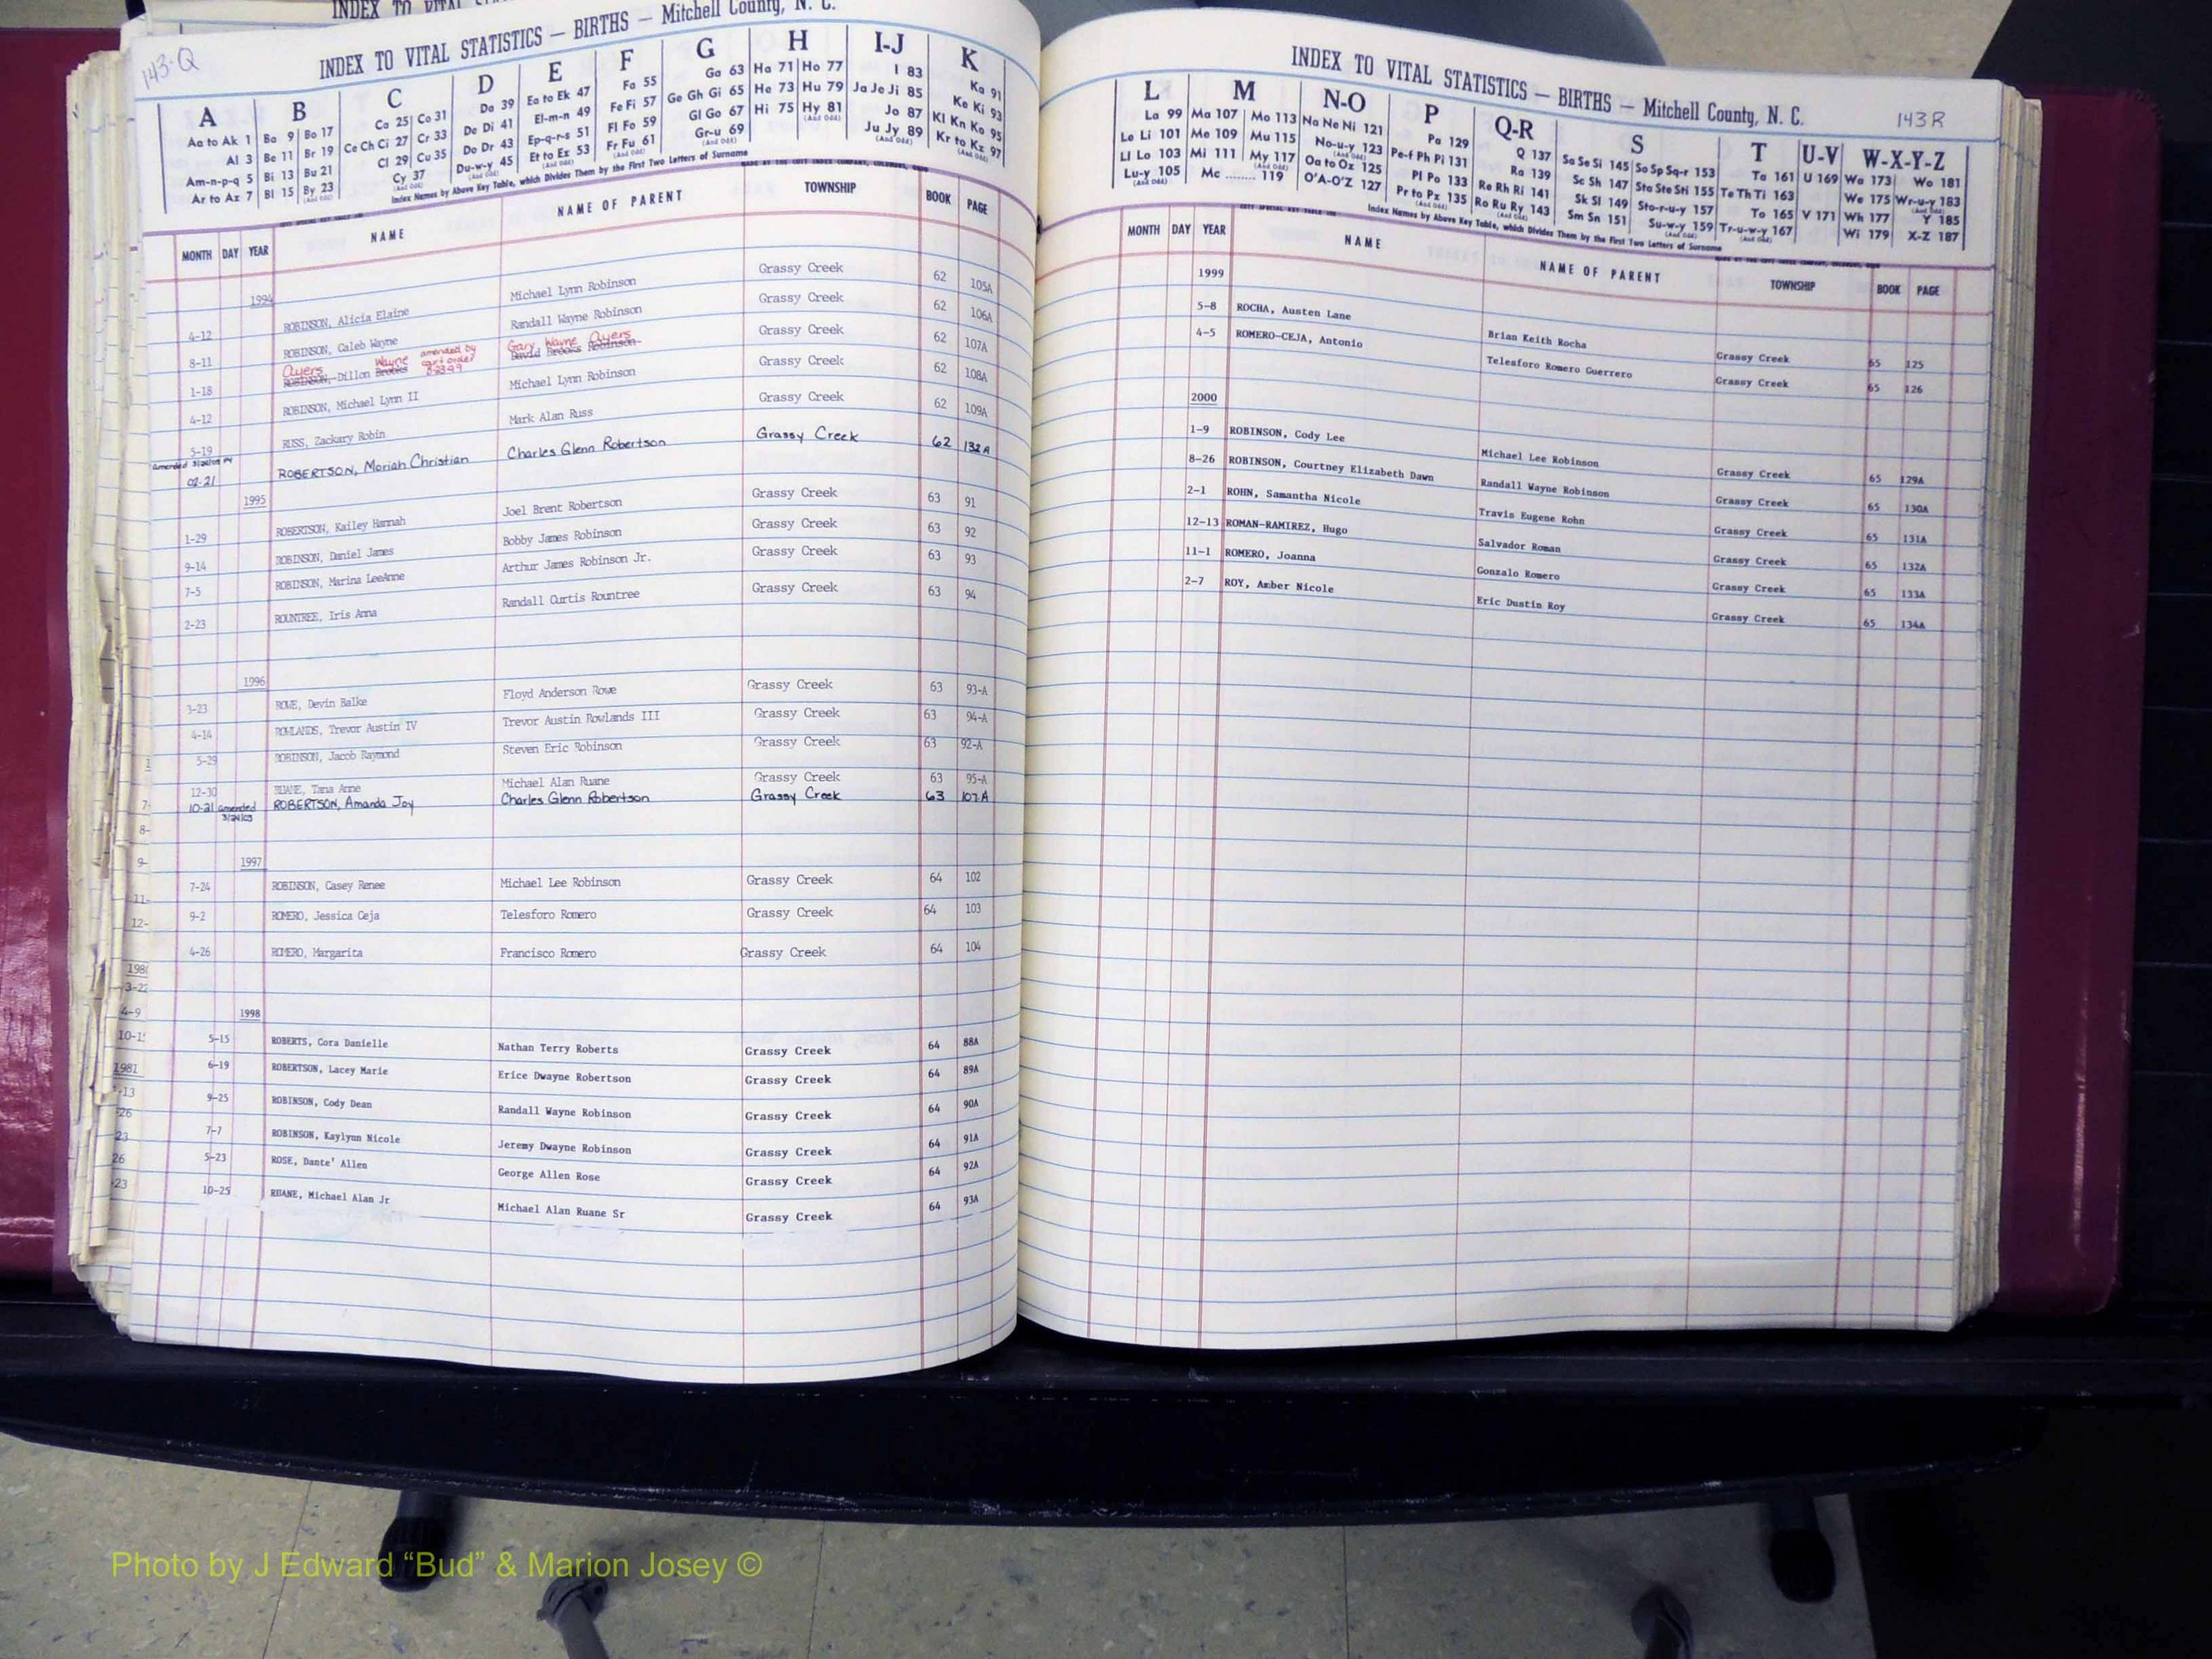 INDEX TO VITAL
143-Q
INDEX TO VITAL STATISTICS — BIRTHS — Mitchell County, N. C.
A B C D E F G H I-J K
Aa to Ak 1 Ba 9 Bo 17 Ca 25 Co 31 Da 39 Ea to Ek 47 Fa 55 Ga 63 Ha 71 Ho 77 I 83 Ka 91
Al 3 Be 11 Br 19 Ce Ch Ci 27 Cr 33 De Di 41 El-m-n 49 Fe Fi 57 Ge Gh Gi 65 He 73 Hu 79 Ja Je Ji 85 Ke Ki 93
Am-n-p-q 5 Bi 13 Bu 21 Cl 29 Cu 35 Do Dr 43 Ep-q-r-s 51 Fl Fo 59 Gl Go 67 Hi 75 Hy 81 Jo 87 Kl Kn Ko 95
Ar to Az 7 Bl 15 By 23 Cy 37 Du-w-y 45 Et to Ez 53 Fr Fu 61 Gr-u 69 Ju Jy 89 Kr to Kz 97
(And Odd) (And Odd) (And Odd) (And Odd) (And Odd) (And Odd) (And Odd) (And Odd) (And Odd)
Index Names by Above Key Table, which Divides Them by the First Two Letters of Surname
MONTH DAY YEAR NAME NAME OF PARENT TOWNSHIP BOOK PAGE
1994
4-12 ROBINSON, Alicia Elaine Michael Lynn Robinson Grassy Creek 62 105A
8-11 ROBINSON, Caleb Wayne Randall Wayne Robinson Grassy Creek 62 106A
Ayers Wayne amended by court order 8-23-99 Gary Wayne Ayers
1-18 ROBINSON, Dillon Brooks David Brooks Robinson Grassy Creek 62 107A
4-12 ROBINSON, Michael Lynn II Michael Lynn Robinson Grassy Creek 62 108A
5-19 RUSS, Zackary Robin Mark Alan Russ Grassy Creek 62 109A
02-21 ROBERTSON, Moriah Christian Charles Glenn Robertson Grassy Creek 62 132A
1995
1-29 ROBERTSON, Kailey Hannah Joel Brent Robertson Grassy Creek 63 91
9-14 ROBINSON, Daniel James Bobby James Robinson Grassy Creek 63 92
7-5 ROBINSON, Marina LeeAnne Arthur James Robinson Jr. Grassy Creek 63 93
2-23 ROUNTREE, Iris Anna Randall Curtis Rountree Grassy Creek 63 94
1996
3-23 ROWE, Devin Balke Floyd Anderson Rowe Grassy Creek 63 93-A
4-14 ROWLANDS, Trevor Austin IV Trevor Austin Rowlands III Grassy Creek 63 94-A
5-29 ROBINSON, Jacob Raymond Steven Eric Robinson Grassy Creek 63 92-A
12-30 RUANE, Tana Anne Michael Alan Ruane Grassy Creek 63 95-A
10-21 amended 3/24/03 ROBERTSON, Amanda Joy Charles Glenn Robertson Grassy Creek 63 107A
1997
7-24 ROBINSON, Casey Renee Michael Lee Robinson Grassy Creek 64 102
9-2 ROMERO, Jessica Ceja Telesforo Romero Grassy Creek 64 103
4-26 ROMERO, Margarita Francisco Romero Grassy Creek 64 104
1998
5-15 ROBERTS, Cora Danielle Nathan Terry Roberts Grassy Creek 64 88A
6-19 ROBERTSON, Lacey Marie Erice Dwayne Robertson Grassy Creek 64 89A
9-25 ROBINSON, Cody Dean Randall Wayne Robinson Grassy Creek 64 90A
7-7 ROBINSON, Kaylynn Nicole Jeremy Dwayne Robinson Grassy Creek 64 91A
5-23 ROSE, Dante' Allen George Allen Rose Grassy Creek 64 92A
10-25 RUANE, Michael Alan Jr Michael Alan Ruane Sr Grassy Creek 64 93A
7-
8-
9-
11-
12-
3-22
4-9
1981
26
23
INDEX TO VITAL STATISTICS — BIRTHS — Mitchell County, N. C.
143R
L M N-O P Q-R S T U-V W-X-Y-Z
La 99 Ma 107 Mo 113 Na Ne Ni 121 Pa 129 Q 137 Sa Se Si 145 So Sp Sq-r 153 Ta 161 U 169 Wa 173 Wo 181
Le Li 101 Me 109 Mu 115 No-u-y 123 Pe-f Ph Pi 131 Ra 139 Sc Sh 147 Sta Ste Sti 155 Te Th Ti 163 We 175 Wr-u-y 183
Ll Lo 103 Mi 111 My 117 Oa to Oz 125 Pl Po 133 Re Rh Ri 141 Sk Sl 149 Sto-r-u-y 157 To 165 V 171 Wh 177 Y 185
Lu-y 105 Mc 119 O'A-O'Z 127 Pr to Pz 135 Ro Ru Ry 143 Sm Sn 151 Su-w-y 159 Tr-u-w-y 167 Wi 179 X-Z 187
(And Odd) (And Odd) (And Odd) (And Odd) (And Odd) (And Odd) (And Odd) (And Odd)
Index Names by Above Key Table, which Divides Them by the First Two Letters of Surname
MONTH DAY YEAR NAME NAME OF PARENT TOWNSHIP BOOK PAGE
1999
5-8 ROCHA, Austen Lane Brian Keith Rocha Grassy Creek 65 125
4-5 ROMERO-CEJA, Antonio Telesforo Romero Guerrero Grassy Creek 65 126
2000
1-9 ROBINSON, Cody Lee Michael Lee Robinson Grassy Creek 65 129A
8-26 ROBINSON, Courtney Elizabeth Dawn Randall Wayne Robinson Grassy Creek 65 130A
2-1 ROHN, Samantha Nicole Travis Eugene Rohn Grassy Creek 65 131A
12-13 ROMAN-RAMIREZ, Hugo Salvador Roman Grassy Creek 65 132A
11-1 ROMERO, Joanna Gonzalo Romero Grassy Creek 65 133A
2-7 ROY, Amber Nicole Eric Dustin Roy Grassy Creek 65 134A
Photo by J Edward “Bud” & Marion Josey ©